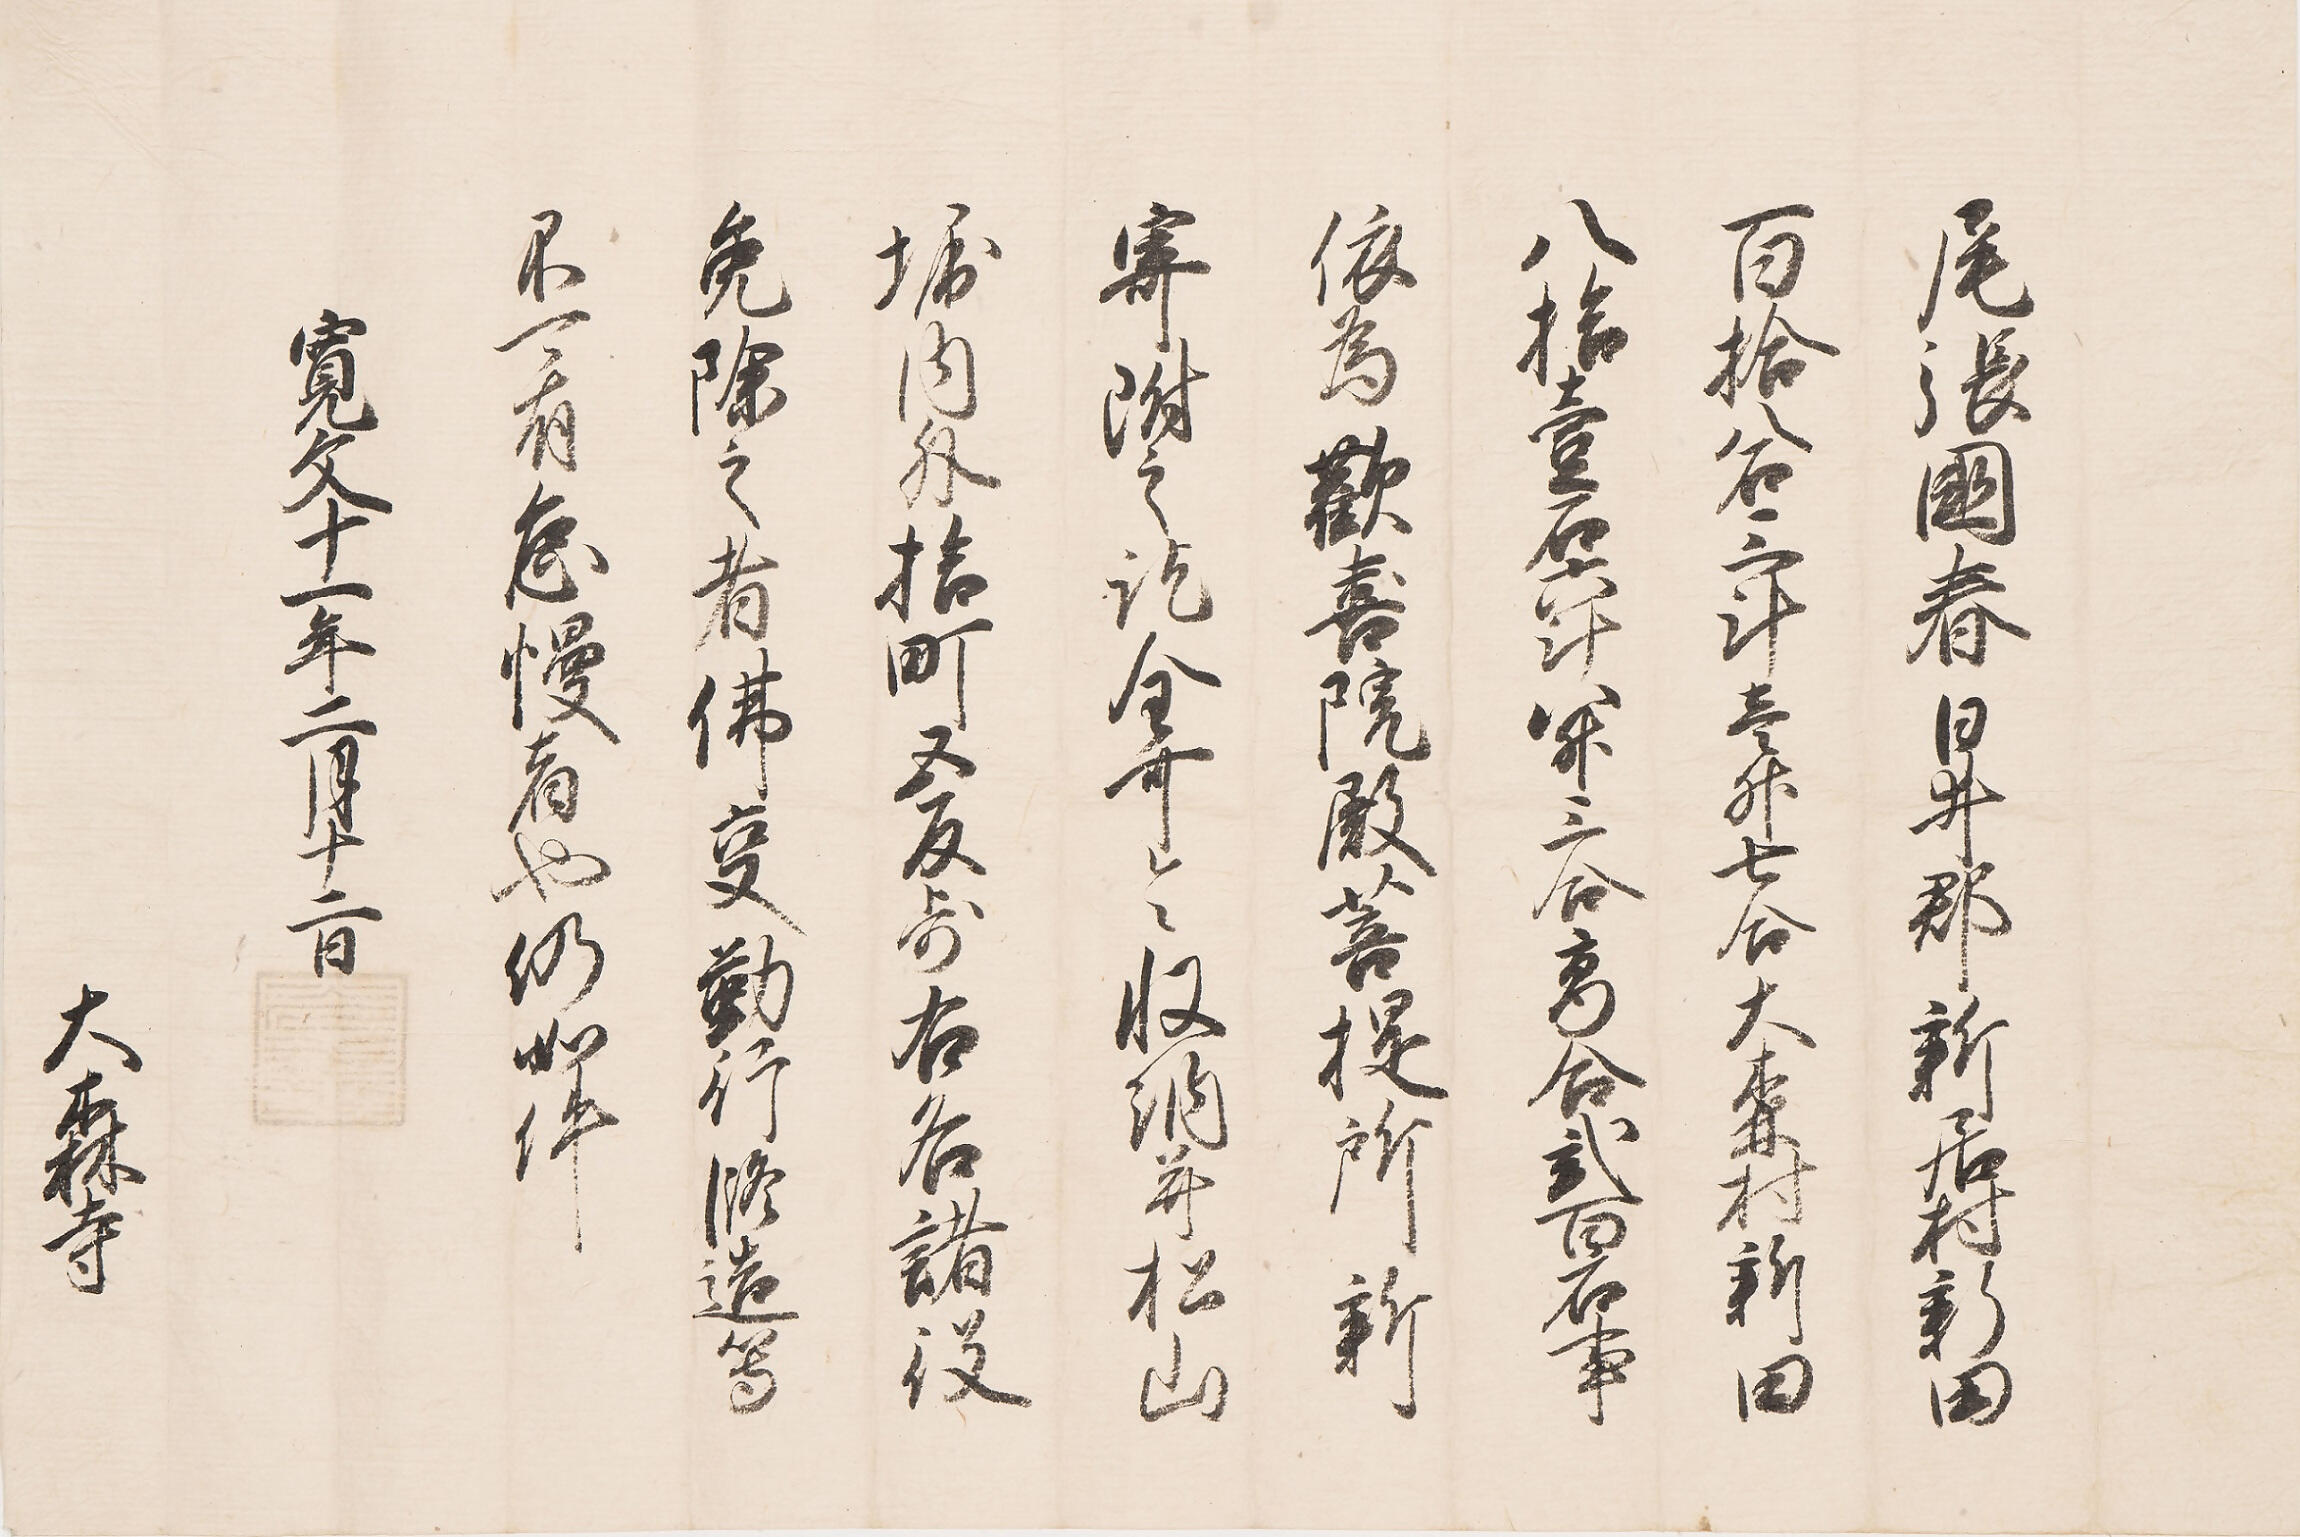 尾張國春日井郡新居村新田
百拾八石三斗壱升七合大森村新田
八拾壹石六斗八升三合高合貳百石事
依為歡喜院殿菩提所新
寄附之訖全可令收納并松山
堀内外拾町反歩右各諸役
免除之者佛受勤行修造等
不可有怠慢者也仍如件
寛文十一年二月十二日
大森寺